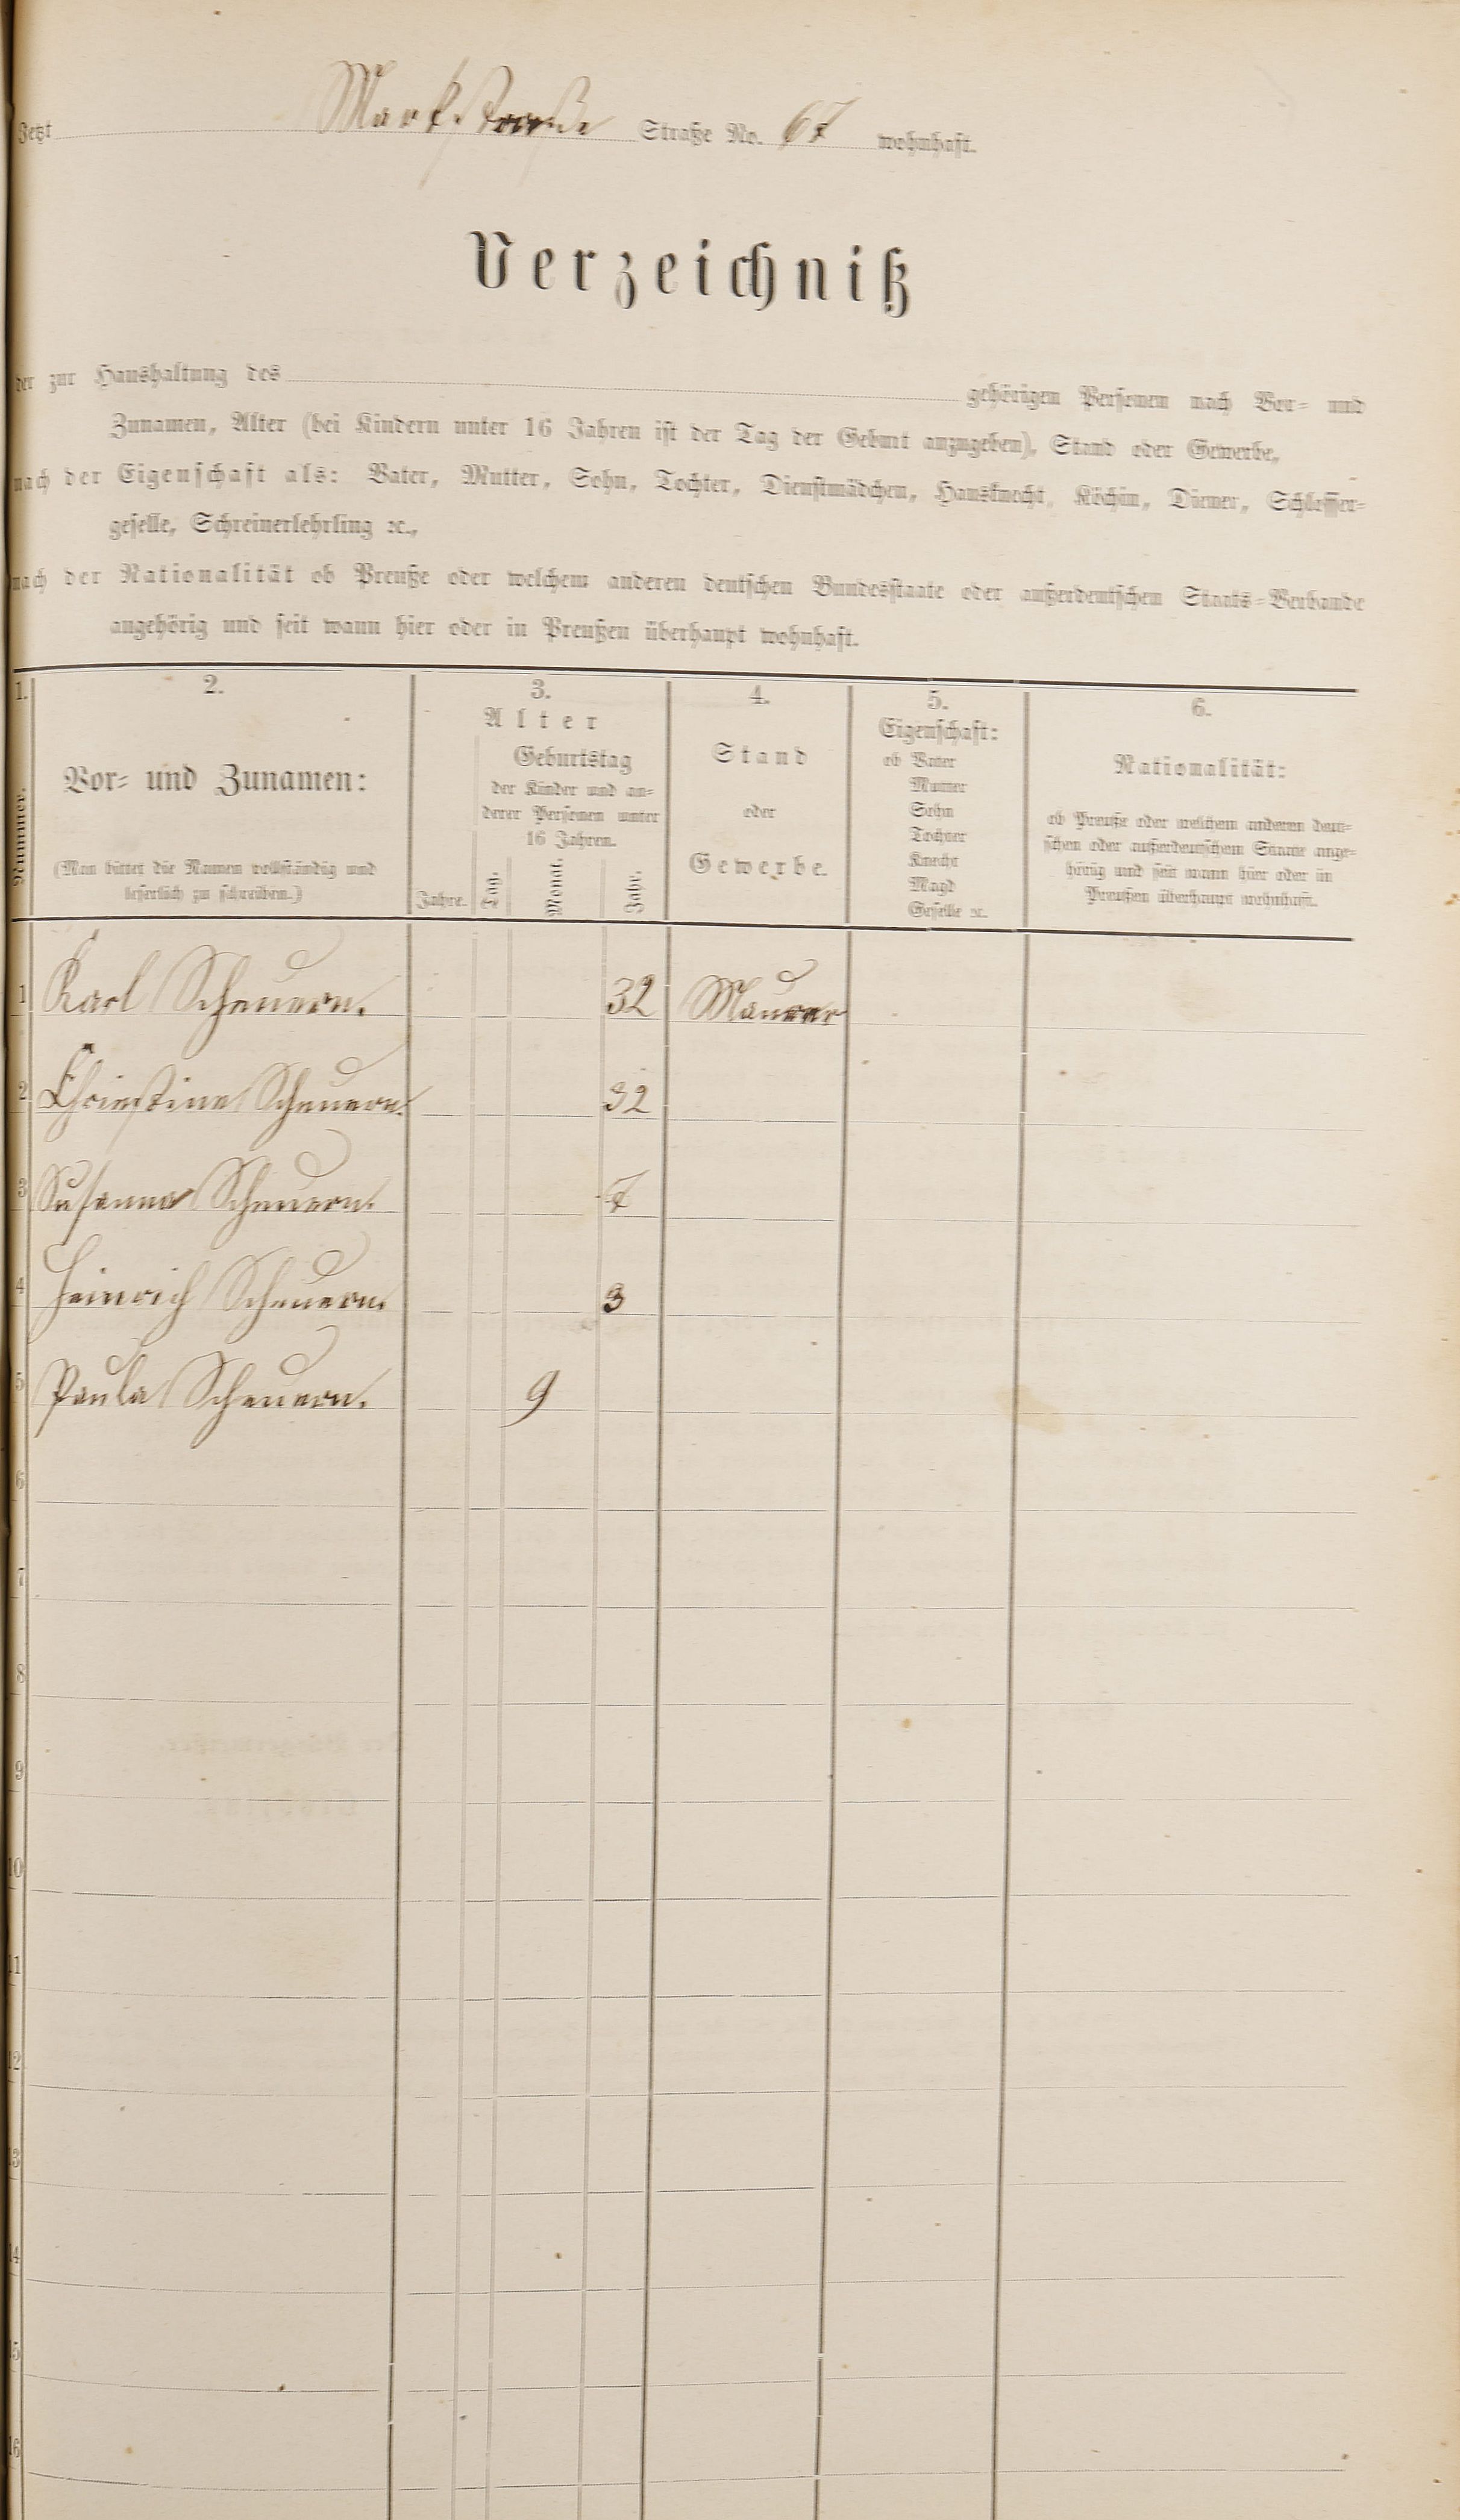 Jetzt Markstraße Straße No. 67 wohnhaft.
Verzeichniß
der zur Haushaltung des gehörigen Personen nach Vor- und
Zunamen, Alter (bei Kindern unter 16 Jahren ist der Tag der Geburt anzugeben), Stand oder Gewerbe,
nach der Eigenschaft als: Vater, Mutter, Sohn, Tochter, Dienstmädchen, Hausknecht, Köchin, Diener, Schlosser-
geselle, Schreinerlehrling ꝛc.,
nach der Nationalität ob Preuße oder welchem anderen deutschen Bundesstaate oder außerdeutschen Staats-Verbande
angehörig und seit wann hier oder in Preußen überhaupt wohnhaft.
1. 2. 3. 4. 5. 6.
Nummer.
Vor- und Zunamen:
(Man bittet die Namen vollständig und
leserlich zu schreiben.)
Alter
Jahre.
Geburtstag
der Kinder und an-
derer Personen unter
16 Jahren.
Tag. Monat. Jahr.
Stand
oder
Gewerbe.
Eigenschaft:
ob Vater
Mutter
Sohn
Tochter
Knecht
Magd
Geselle ꝛc.
Nationalität:
ob Preuße oder welchem anderen deut-
schen oder außerdeutschen Staate ange-
hörig und seit wann hier oder in
Preußen überhaupt wohnhaft.
1 Karl Scheuern. 32 Maurer
2 Christine Scheuern. 32
3 Susanna Scheuern. 7
4 Heinrich Scheuern. 3
5 Paula Scheuern. 9
6
7
8
9
10
11
12
13
14
15
16